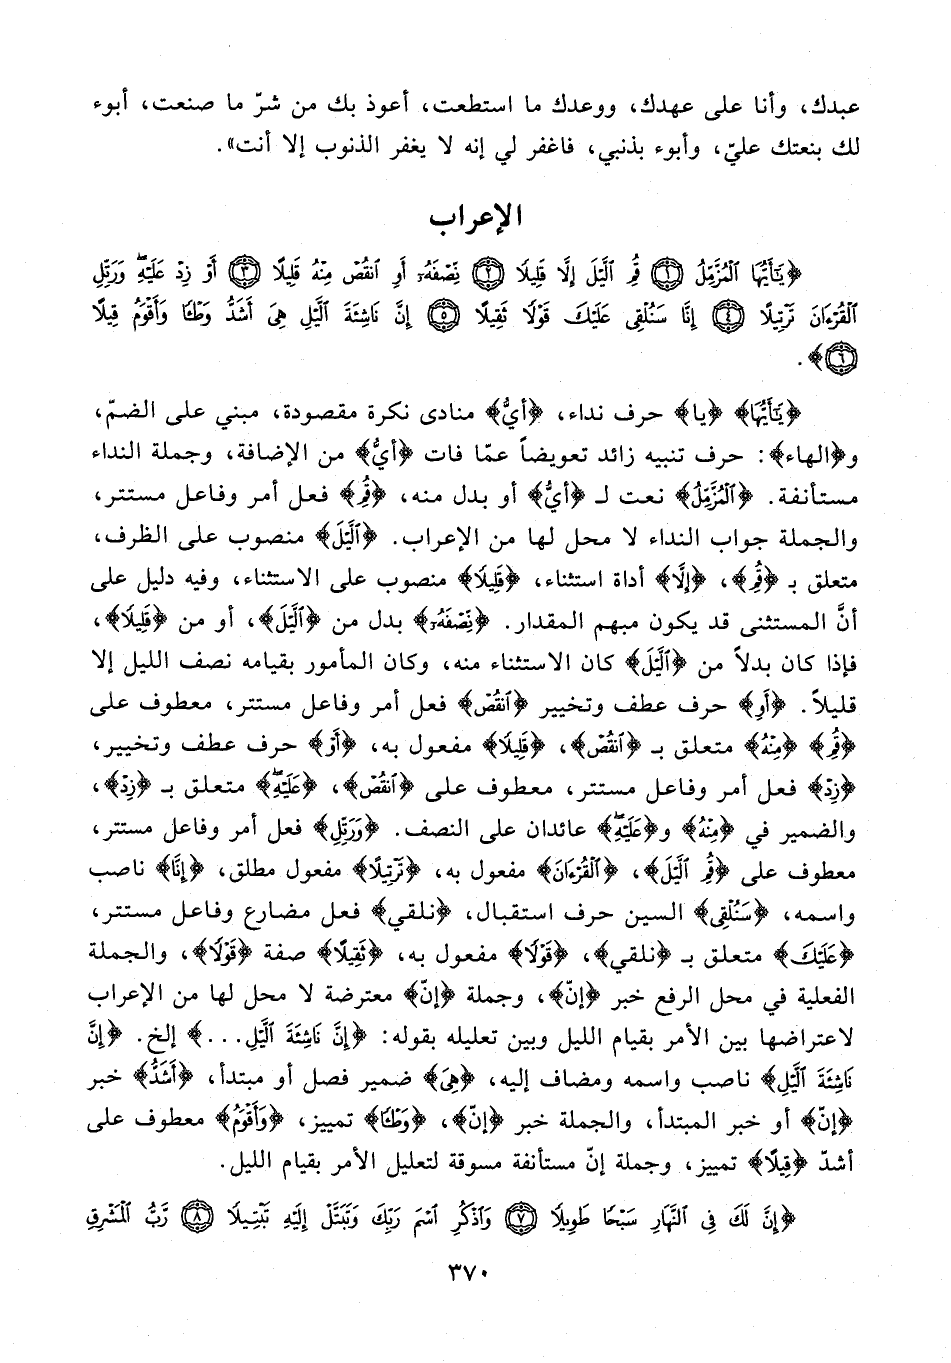 عبدك، وأنا على عهدك، ووعدك ما استطعت، أعوذ بك من شرّ ما صنعت، أبوء
لك بنعتك عليّ، وأبوء بذنبي، فاغفر لي إنه لا يغفر الذنوب إلا أنت».
الإعراب
﴿يَٰٓأَيُّهَا ٱلْمُزَّمِّلُ ۝١ قُمِ ٱلَّيْلَ إِلَّا قَلِيلًا ۝٢ نِّصْفَهُۥٓ أَوِ ٱنقُصْ مِنْهُ قَلِيلًا ۝٣ أَوْ زِدْ عَلَيْهِ وَرَتِّلِ
ٱلْقُرْءَانَ تَرْتِيلًا ۝٤ إِنَّا سَنُلْقِى عَلَيْكَ قَوْلًا ثَقِيلًا ۝٥ إِنَّ نَاشِئَةَ ٱلَّيْلِ هِىَ أَشَدُّ وَطْـًٔا وَأَقْوَمُ قِيلًا
۝٦﴾.
﴿يَٰٓأَيُّهَا﴾ ﴿يا﴾ حرف نداء، ﴿أيُّ﴾ منادى نكرة مقصودة، مبني على الضمّ،
و﴿الهاء﴾: حرف تنبيه زائد تعويضاً عمّا فات ﴿أيُّ﴾ من الإضافة، وجملة النداء
مستأنفة. ﴿ٱلْمُزَّمِّلُ﴾ نعت لـ ﴿أيُّ﴾ أو بدل منه، ﴿قُمِ﴾ فعل أمر وفاعل مستتر،
والجملة جواب النداء لا محل لها من الإعراب. ﴿ٱلَّيْلَ﴾ منصوب على الظرف،
متعلق بـ ﴿قُمِ﴾، ﴿إِلَّا﴾ أداة استثناء، ﴿قَلِيلًا﴾ منصوب على الاستثناء، وفيه دليل على
أنَّ المستثنى قد يكون مبهم المقدار. ﴿نِّصْفَهُۥٓ﴾ بدل من ﴿ٱلَّيْلَ﴾، أو من ﴿قَلِيلًا﴾،
فإذا كان بدلاً من ﴿ٱلَّيْلَ﴾ كان الاستثناء منه، وكان المأمور بقيامه نصف الليل إلا
قليلاً. ﴿أَوِ﴾ حرف عطف وتخيير ﴿ٱنقُصْ﴾ فعل أمر وفاعل مستتر، معطوف على
﴿قُمِ﴾ ﴿مِنْهُ﴾ متعلق بـ ﴿ٱنقُصْ﴾، ﴿قَلِيلًا﴾ مفعول به، ﴿أَوْ﴾ حرف عطف وتخيير،
﴿زِدْ﴾ فعل أمر وفاعل مستتر، معطوف على ﴿ٱنقُصْ﴾، ﴿عَلَيْهِ﴾ متعلق بـ ﴿زِدْ﴾،
والضمير في ﴿مِنْهُ﴾ و﴿عَلَيْهِ﴾ عائدان على النصف. ﴿وَرَتِّلِ﴾ فعل أمر وفاعل مستتر،
معطوف على ﴿قُمِ ٱلَّيْلَ﴾، ﴿ٱلْقُرْءَانَ﴾ مفعول به، ﴿تَرْتِيلًا﴾ مفعول مطلق، ﴿إِنَّا﴾ ناصب
واسمه، ﴿سَنُلْقِى﴾ السين حرف استقبال، ﴿نلقي﴾ فعل مضارع وفاعل مستتر،
﴿عَلَيْكَ﴾ متعلق بـ ﴿نلقي﴾، ﴿قَوْلًا﴾ مفعول به، ﴿ثَقِيلًا﴾ صفة ﴿قَوْلًا﴾، والجملة
الفعلية في محل الرفع خبر ﴿إنّ﴾، وجملة ﴿إنّ﴾ معترضة لا محل لها من الإعراب
لاعتراضها بين الأمر بقيام الليل وبين تعليله بقوله: ﴿إِنَّ نَاشِئَةَ ٱلَّيْلِ...﴾ إلخ. ﴿إِنَّ
نَاشِئَةَ ٱلَّيْلِ﴾ ناصب واسمه ومضاف إليه، ﴿هِىَ﴾ ضمير فصل أو مبتدأ، ﴿أَشَدُّ﴾ خبر
﴿إنّ﴾ أو خبر المبتدأ، والجملة خبر ﴿إنّ﴾، ﴿وَطْـًٔا﴾ تمييز، ﴿وَأَقْوَمُ﴾ معطوف على
أشدّ ﴿قِيلًا﴾ تمييز، وجملة إنّ مستأنفة مسوقة لتعليل الأمر بقيام الليل.
﴿إِنَّ لَكَ فِى ٱلنَّهَارِ سَبْحًا طَوِيلًا ۝٧ وَٱذْكُرِ ٱسْمَ رَبِّكَ وَتَبَتَّلْ إِلَيْهِ تَبْتِيلًا ۝٨ رَّبُّ ٱلْمَشْرِقِ
٣٧٠